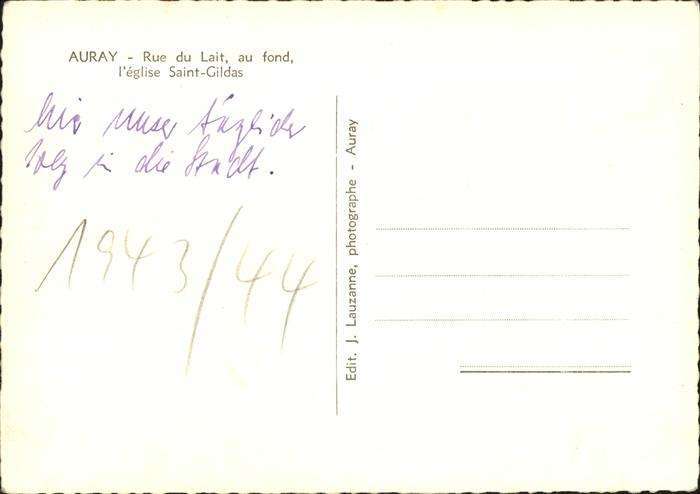 AURAY - Rue du Lait, au fond,
l'église Saint-Gildas
hier unser täglicher
Weg in die Stadt.
1943/44
Edit. J. Lauzanne, photographe - Auray